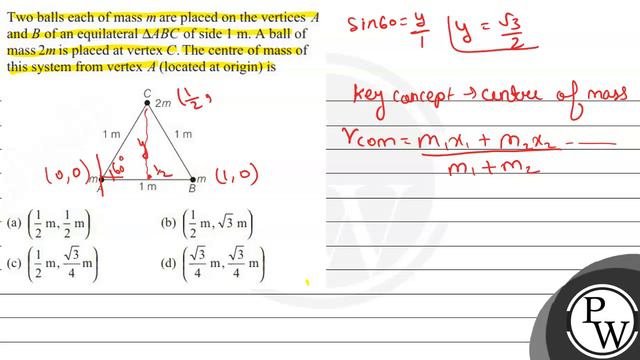 Two balls each of mass m are placed on the vertices A
and B of an equilateral ΔABC of side 1 m. A ball of
mass 2m is placed at vertex C. The centre of mass of
this system from vertex A (located at origin) is
C
2m
(1/2,
1 m
1 m
y
60°
1/2
(0,0)
m
A
1 m
B
m
(1,0)
(a) (1/2 m, 1/2 m)
(b) (1/2 m, √3 m)
(c) (1/2 m, √3/4 m)
(d) (√3/4 m, √3/4 m)
sin60 = y/1
y = √3/2
Key concept → centre of mass
rcom = m₁x₁ + m₂x₂ -----
m₁ + m₂
P
W